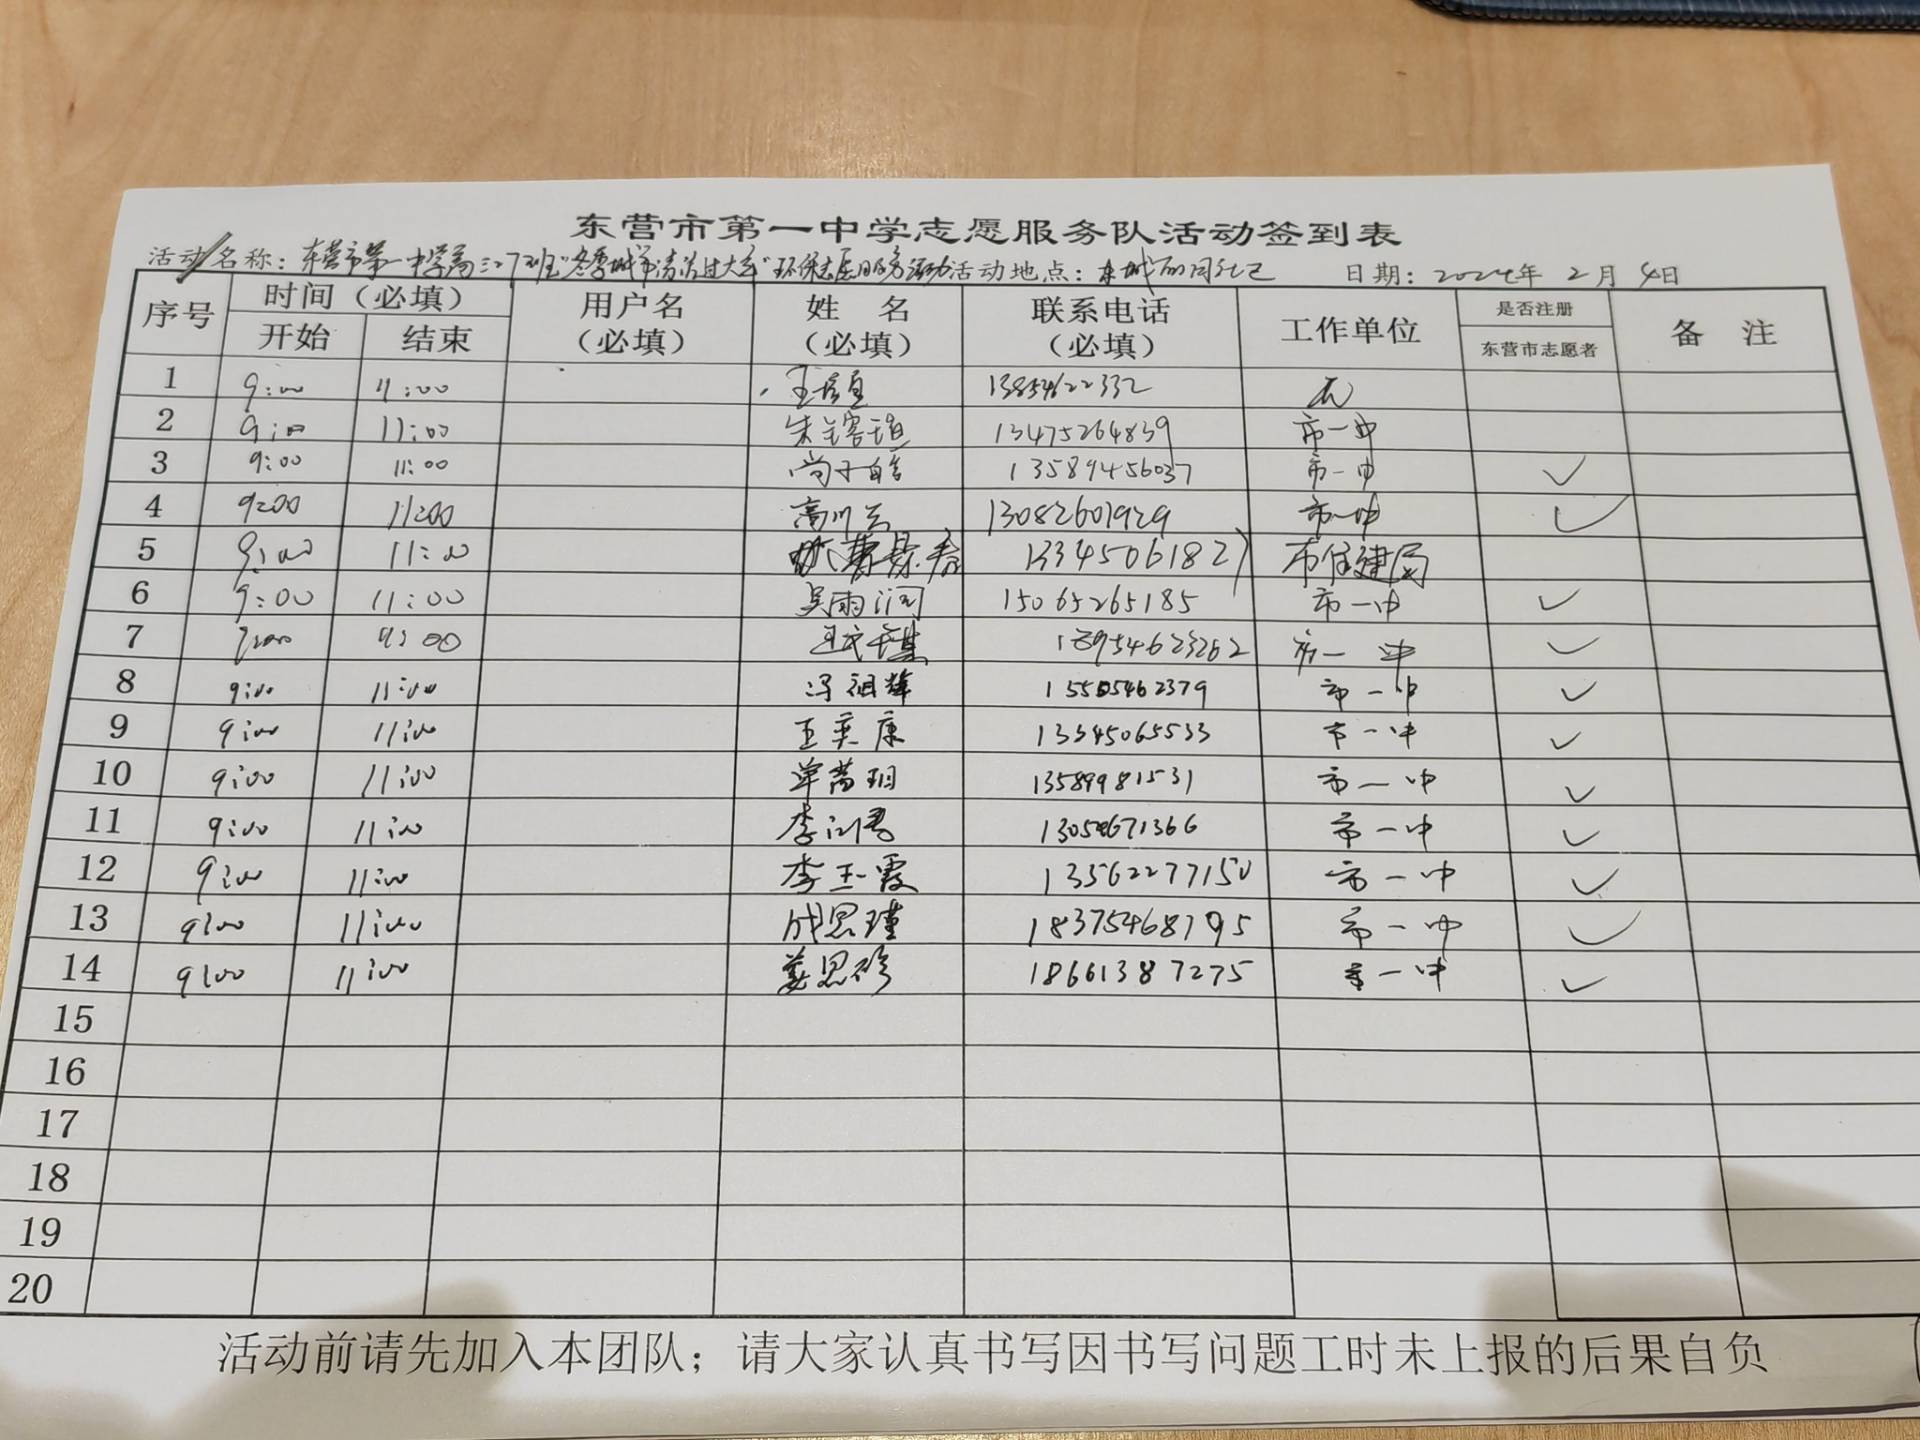 东营市第一中学志愿服务队活动签到表
活动名称：东营市第一中学高三27班"冬季城市清洁过大年"环保志愿服务活动 活动地点：东城 日期：2024年 2月 4日
序号 时间（必填） 用户名（必填） 姓 名（必填） 联系电话（必填） 工作单位 是否注册 备 注
开始 结束 东营市志愿者
1 9:00 11:00 13854622332 无
2 9:00 11:00 13475264839 市一中
3 9:00 11:00 13589456037 市一中 ✓
4 9:00 11:00 高川云 13082601929 市一中 ✓
5 9:00 11:00 13345061827 市住建局
6 9:00 11:00 吴雨 15065265185 市一中 ✓
7 11:00 18954623262 市一中 ✓
8 9:00 11:00 冯祖辉 15505462379 市一中 ✓
9 9:00 11:00 王奕康 13345065533 市一中 ✓
10 9:00 11:00 13589981531 市一中 ✓
11 9:00 11:00 13054671366 市一中 ✓
12 9:00 11:00 李玉霞 13562277150 市一中 ✓
13 9:00 11:00 成思瑾 18375468795 市一中 ✓
14 9:00 11:00 姜思 18661387275 市一中 ✓
15
16
17
18
19
20
活动前请先加入本团队；请大家认真书写因书写问题工时未上报的后果自负